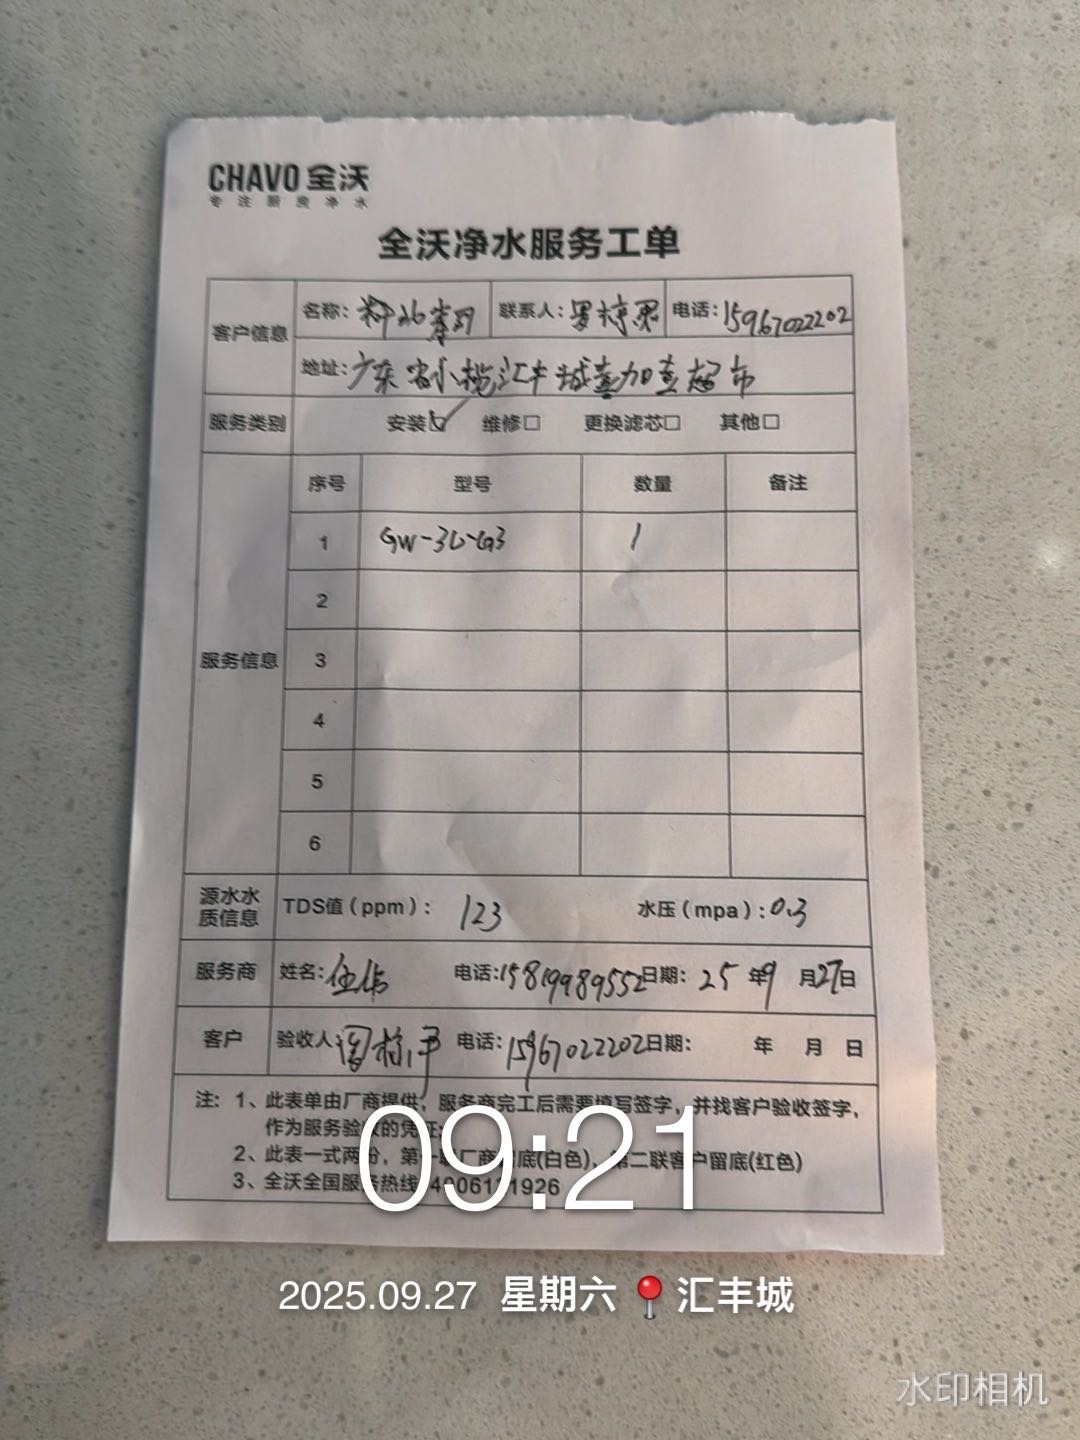 CHAVO 全沃
专注厨房净水
全沃净水服务工单
客户信息 名称： 联系人： 电话：15967022202
地址：广东省小榄汇丰城壹加壹超市
服务类别 安装☑ 维修□ 更换滤芯□ 其他□
服务信息 序号 型号 数量 备注
1 GW-3L-G3 1
2
3
4
5
6
源水水质信息 TDS值（ppm）：123 水压（mpa）：0.3
服务商 姓名： 电话：15819989552 日期：25年9月27日
客户 验收人 电话：15967022202 日期： 年 月 日
注：1、此表单由厂商提供，服务商完工后需要填写签字，并找客户验收签字，
作为服务验收的凭证；
2、此表一式两份，第一联厂商留底(白色)、第二联客户留底(红色)
3、全沃全国服务热线
09:21
2025.09.27 星期六 📍汇丰城
水印相机